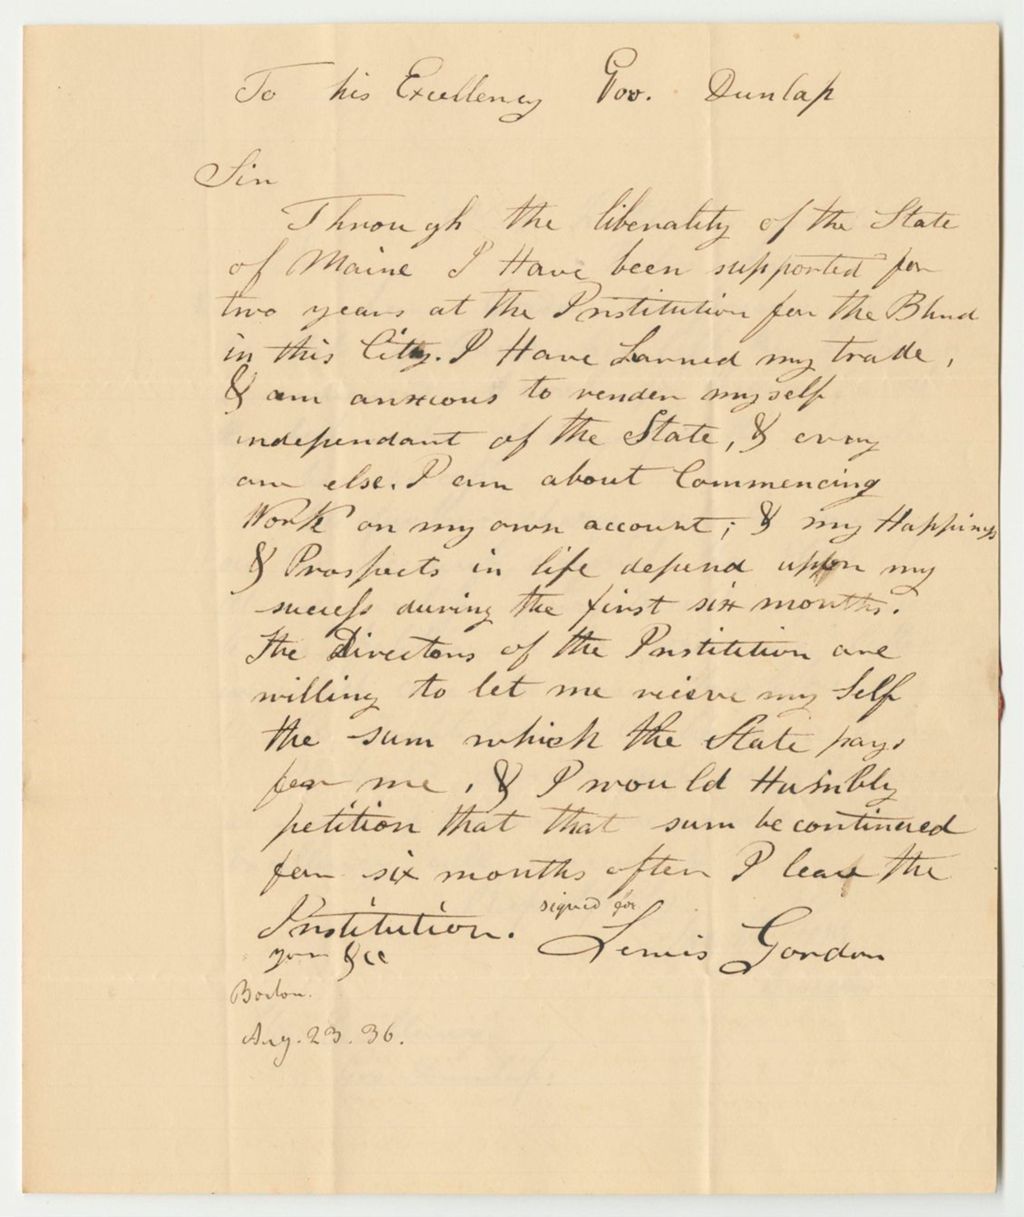 To his Excellency Gov. Dunlap
Sir
Through the liberality of the State
of Maine I Have been supported for
two years at the Institution for the Blind
in this City. I Have Larned my trade,
& am anxious to render myself
independant of the State, & every
one else. I am about Commencing
Work on my own account; & my Happiness
& Prospects in life depend upon my
success during the first six months.
The Directors of the Institition are
willing to let me recieve my Self
the sum which the State pays
for me, & I would Humbly
petition that that sum be continued
for six months after I leave the
Institution. signed for
your &c Lewis Gordon
Boston.
Aug. 23. 36.